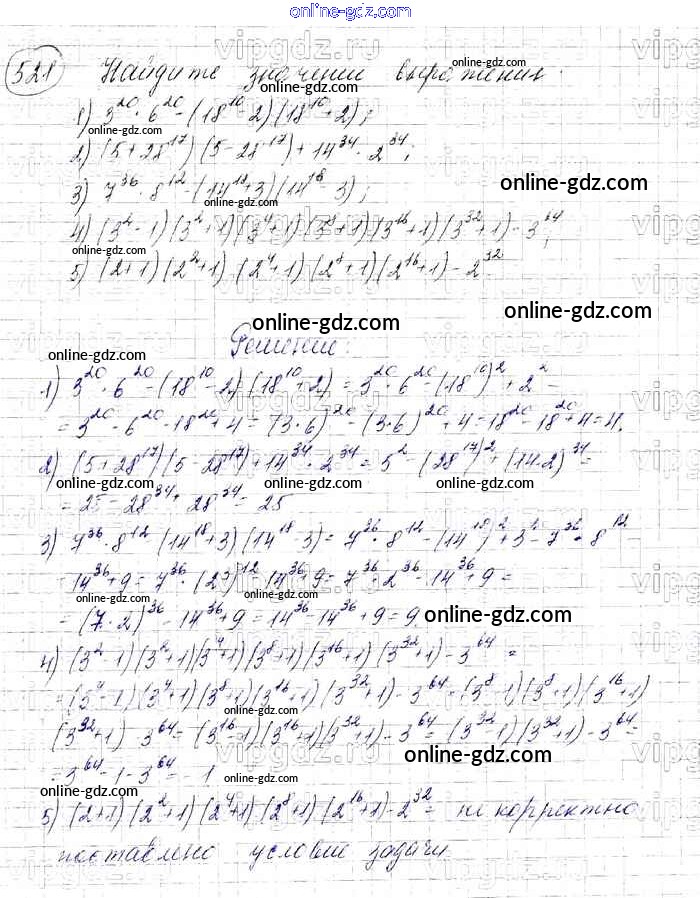 online-gdz.com
521 Найдите значение выражения:
1) 3^20 · 6^20 - (18^10 - 2)(18^10 + 2);
2) (5 + 28^17)(5 - 28^17) + 14^34 · 2^34;
3) 7^36 · 8^12 - (14^18 + 3)(14^18 - 3);
4) (3^2 - 1)(3^2 + 1)(3^4 + 1)(3^8 + 1)(3^16 + 1)(3^32 + 1) - 3^64;
5) (2 + 1)(2^2 + 1)(2^4 + 1)(2^8 + 1)(2^16 + 1) - 2^32.
Решение:
1) 3^20 · 6^20 - (18^10 - 2)(18^10 + 2) = 3^20 · 6^20 - (18^10)^2 + 2^2 =
= 3^20 · 6^20 - 18^20 + 4 = (3 · 6)^20 - (3 · 6)^20 + 4 = 18^20 - 18^20 + 4 = 4.
2) (5 + 28^17)(5 - 28^17) + 14^34 · 2^34 = 5^2 - (28^17)^2 + (14 · 2)^34 =
= 25 - 28^34 + 28^34 = 25
3) 7^36 · 8^12 - (14^18 + 3)(14^18 - 3) = 7^36 · 8^12 - (14^18)^2 + 3^2 = 7^36 · 8^12
- 14^36 + 9 = 7^36 · (2^3)^12 - 14^36 + 9 = 7^36 · 2^36 - 14^36 + 9 =
= (7 · 2)^36 - 14^36 + 9 = 14^36 - 14^36 + 9 = 9
4) (3^2 - 1)(3^2 + 1)(3^4 + 1)(3^8 + 1)(3^16 + 1)(3^32 + 1) - 3^64 =
= (3^4 - 1)(3^4 + 1)(3^8 + 1)(3^16 + 1)(3^32 + 1) - 3^64 = (3^8 - 1)(3^8 + 1)(3^16 + 1)
(3^32 + 1) - 3^64 = (3^16 - 1)(3^16 + 1)(3^32 + 1) - 3^64 = (3^32 - 1)(3^32 + 1) - 3^64 =
= 3^64 - 1 - 3^64 = - 1
5) (2 + 1)(2^2 + 1)(2^4 + 1)(2^8 + 1)(2^16 + 1) - 2^32 = не корректно
поставлено условие задачи